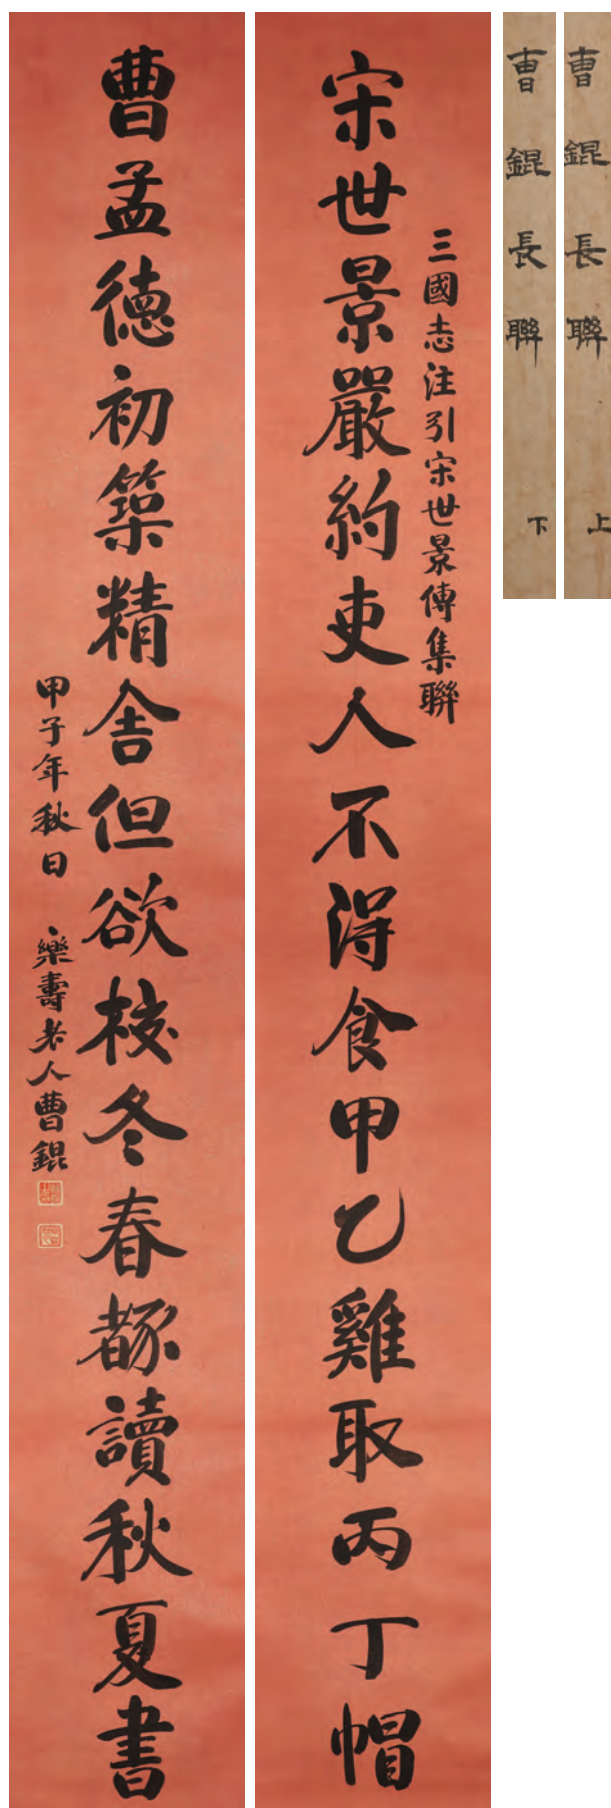 曹錕長聯 上
曹錕長聯 下
三國志注引宋世景傳集聯
宋世景嚴約吏人不得食甲乙雞取丙丁帽
曹孟德初築精舍但欲校冬春豬讀秋夏書
甲子年秋日 樂壽老人曹錕